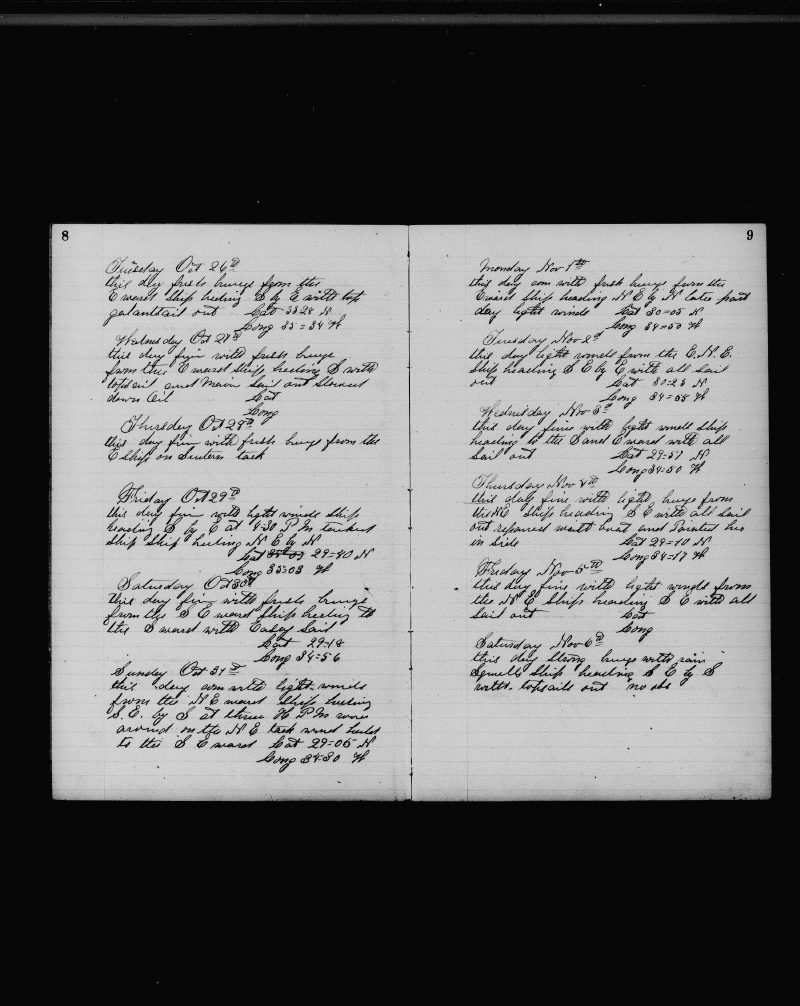 8
Tuesday Oct 26th
this day fresh breeze from the
E ward Ship heeding S by E with top
galantsail out Lat 33-28 N
Long 35=34 W
Wednesday Oct 27th
this day fin with fresh breeze
from thee E ward Ship heeding S with
topsail and Main Sail out Stowed
down Oil Lat
Long
Thursday Oct 28th
this day fin with fresh breeze from the
E Ship on tack
Friday Oct 29th
this day fin with light winds Ship
heading S by E at 4-30 P M tacked
Ship Ship heeding N E by N
Lat 29=40 N
Long 35=03 W
Saturday Oct 30th
this day fin with fresh breeze
from the S E ward Ship heeding to
the S ward with Easey Sail
Lat 29=18
Long 34=56
Sunday Oct 31st
this day com with light winds
from the N E ward Ship heeding
S. E. by S at three H P M wore
around on the N E tack wind
to the S E ward Lat 29=05 N
Long 34=30 W
9
Monday Nov 1st
this day com with fresh breeze from the
E ward Ship heading N E by N later part
day light winds Lat 30=05 N
Long 34=50 W
Tuesday Nov 2d
this day light winds from the E. N. E.
Ship heading S E by E with all Sail
out Lat 30-23 N
Long 34=55 W
Wednesday Nov 3d
this day fine with light winds Ship
heading to the S and E ward with all
Sail out Lat 29-57 N
Long 34-50 W
Thursday Nov 4th
this day fine with light breeze from
the NE Ship heading S E with all Sail
out repaired waist boat and Painted her
in Side Lat 29=10 N
Long 34=17 W
Friday Nov 5th
this day fine with light winds from
the N E Ship heading S E with all
Sail out Lat
Long
Saturday Nov 6th
this day Strong breeze with rain
Squalls Ship heading S E by S
with topsails out no obs